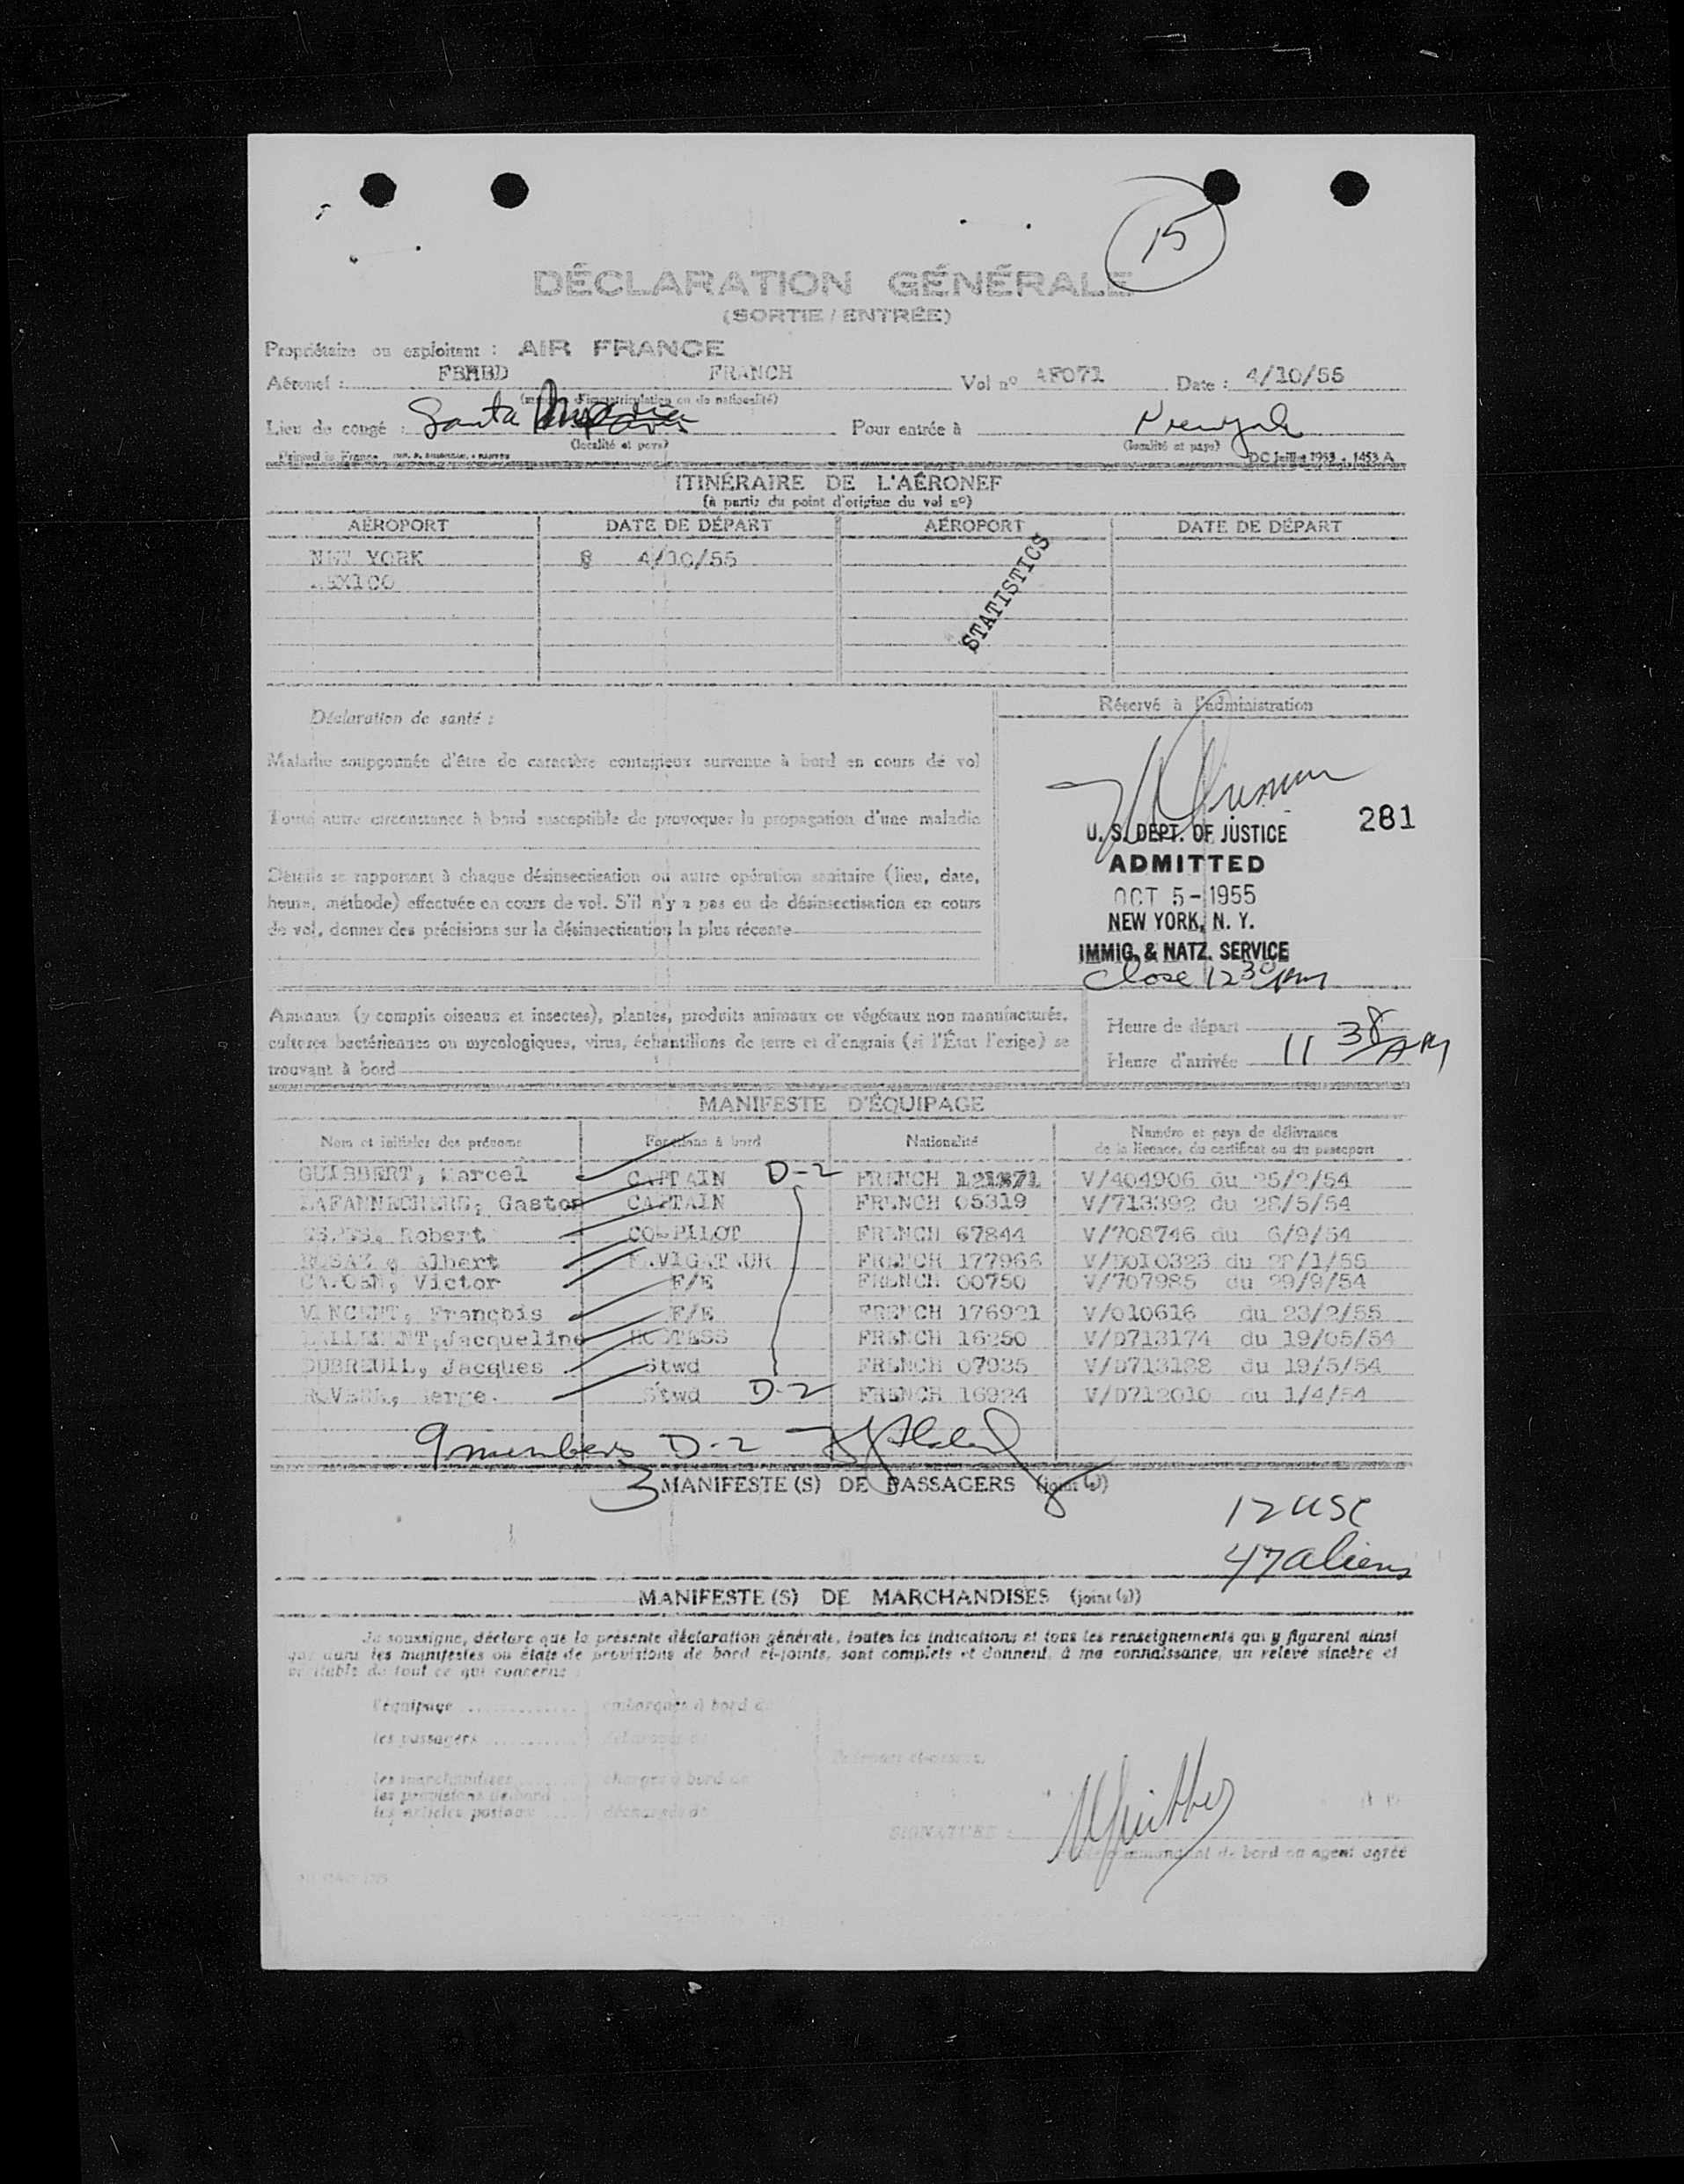 15
DÉCLARATION GÉNÉRALE
(SORTIE / ENTRÉE)
Propriétaire ou exploitant : AIR FRANCE
Aéronef : FBHBD FRANCH Vol nº AF071 Date : 4/10/55
(marque d'immatriculation ou de nationalité)
Lieu de congé : Santa Pour entrée à
(localité et pays) (localité et pays)
Printed in France DC Juillet 1953 - 1453 A
ITINÉRAIRE DE L'AÉRONEF
(à partir du point d'origine du vol nº)
AÉROPORT DATE DE DÉPART AÉROPORT DATE DE DÉPART
NEW YORK 4/10/55
MEXICO
STATISTICS
Déclaration de santé :
Réservé à l'administration
Maladie soupçonnée d'être de caractère contagieux survenue à bord en cours de vol
Toute autre circonstance à bord susceptible de provoquer la propagation d'une maladie
281
U. S. DEPT. OF JUSTICE
ADMITTED
OCT 5 - 1955
NEW YORK, N. Y.
IMMIG. & NATZ. SERVICE
Close 12 30 pm
Détails se rapportant à chaque désinsectisation ou autre opération sanitaire (lieu, date,
heure, méthode) effectuée en cours de vol. S'il n'y a pas eu de désinsectisation en cours
de vol, donner des précisions sur la désinsectisation la plus récente
Animaux (y compris oiseaux et insectes), plantes, produits animaux ou végétaux non manufacturés,
cultures bactériennes ou mycologiques, virus, échantillons de terre et d'engrais (si l'État l'exige) se
trouvant à bord
Heure de départ
Heure d'arrivée 11 38 AM
MANIFESTE D'ÉQUIPAGE
Nom et initiales des prénoms Fonctions à bord Nationalité Numéro et pays de délivrance
de la licence, du certificat ou du passeport
GUIBBERT, Marcel CAPTAIN D-2 FRENCH V/404906 du 25/2/54
Gaston CAPTAIN FRENCH 05319 V/713392 du 28/5/54
Robert CO-PILOT FRENCH 67844 V/708746 du 6/9/54
Albert NAVIGATEUR FRENCH 177966 V/DO10323 du
Victor F/E FRENCH 00750 V/707985 du 29/9/54
VINCENT, François F/E FRENCH 176921 V/010616 du 23/2/55
LALLEMENT, Jacqueline HOSTESS FRENCH 16250 V/D713174 du 19/05/54
DUBREUIL, Jacques Stwd FRENCH 07935 V/D713188 du 19/5/54
Serge. Stwd D-2 FRENCH 16924 V/D712010 du 1/4/54
9 members D-2
3 MANIFESTE (S) DE PASSAGERS (joint (s))
12 USC
47 aliens
MANIFESTE (S) DE MARCHANDISES (joint (s))
Je soussigné, déclare que la présente déclaration générale, toutes les indications et tous les renseignements qui y figurent ainsi
que dans les manifestes ou états de provisions de bord ci-joints, sont complets et donnent, à ma connaissance, un relevé sincère et
véritable de tout ce qui concerne :
l'équipage embarqués à bord de
les passagers
les marchandises chargés à bord de
les provisions de bord
les articles postaux déchargés de
SIGNATURE :
commandant de bord ou agent agréé